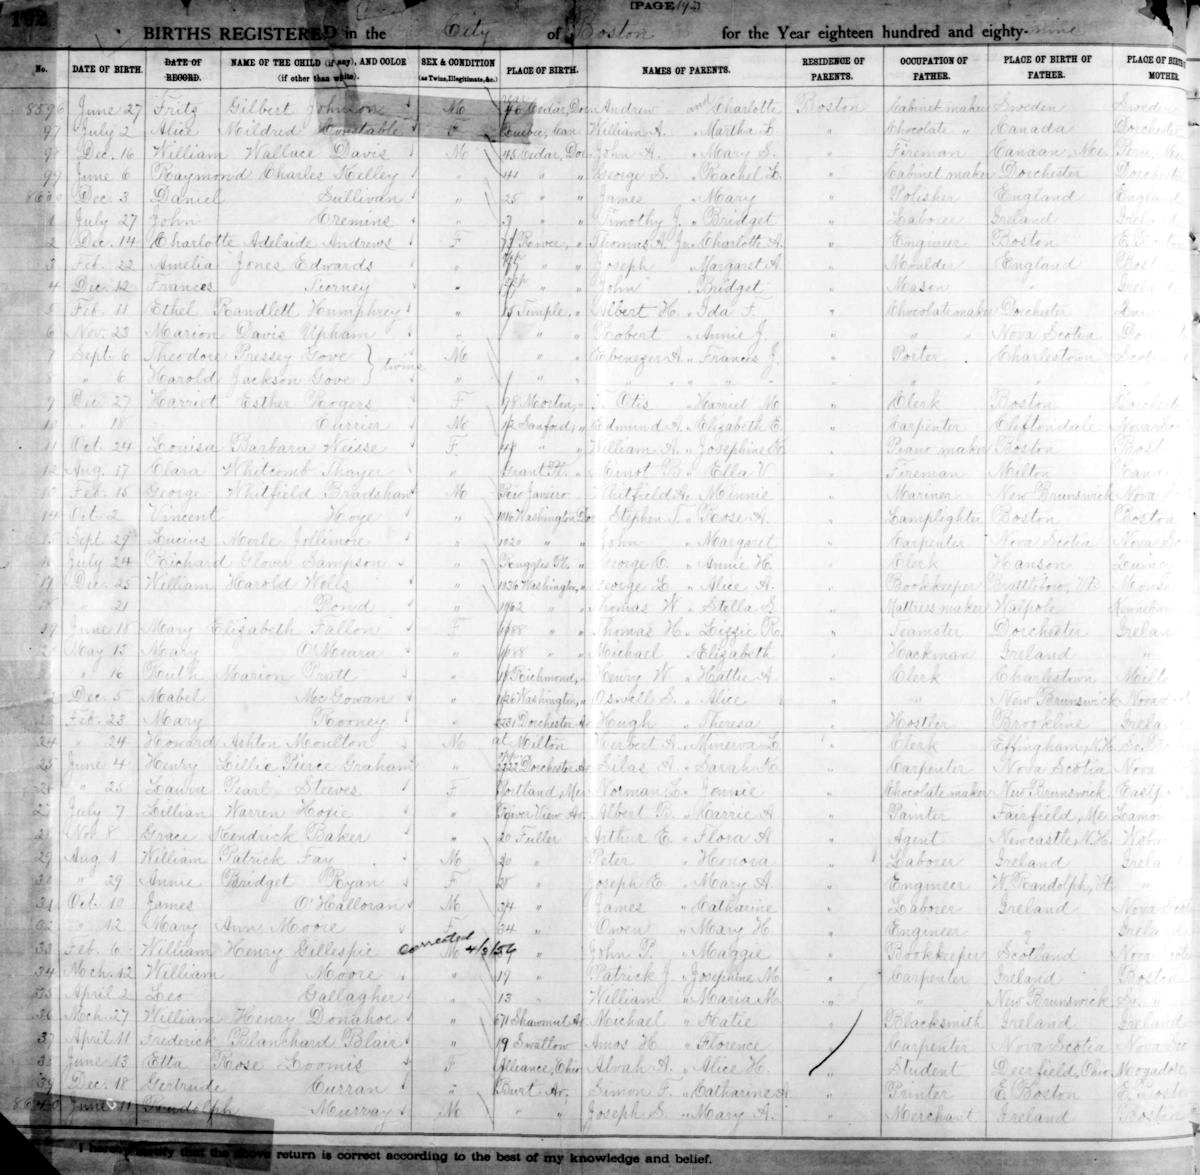 192
[PAGE 192]
BIRTHS REGISTERED in the City of Boston for the Year eighteen hundred and eighty-nine
No. DATE OF BIRTH. DATE OF RECORD. NAME OF THE CHILD (if any), AND COLOR (if other than white). SEX & CONDITION (as Twins, Illegitimate, &c.) PLACE OF BIRTH. NAMES OF PARENTS. RESIDENCE OF PARENTS. OCCUPATION OF FATHER. PLACE OF BIRTH OF FATHER. PLACE OF BIRTH MOTHER.
8596 June 27 Fritz Gilbert Johnson M Cedar, Dor. Andrew and Charlotte Boston Cabinet maker Sweden Sweden
97 July 2 Alice Mildred Constable F Quebec, Can. William A. " Martha L. " Chocolate " Canada Dorcheste
98 Dec. 16 William Wallace Davis M 45 Cedar, Dor. John A. " Mary S. " Fireman Canaan, Me. Peru, Me.
99 June 6 Raymond Charles Kelley " 41 " " George S. " Rachel L. " Cabinet maker Dorchester Dorchester
8600 Dec. 3 Daniel Sullivan " 25 " " James " Mary " Polisher England England
1 July 27 John Cremins " " " Timothy J. " Bridget " Laborer Ireland Ireland
2 Dec. 14 Charlotte Adelaide Andrews F Power, " Thomas A. Jr. " Charlotte A. " Engineer Boston E. Boston
3 Feb. 22 Amelia Jones Edwards " " " Joseph " Margaret A. " Moulder England Bost
4 Dec. 12 Frances Tierney " " " John " Bridget " Mason " Irelan
5 Feb. 11 Ethel Randlett Humphrey " 15 Temple, " Albert H. " Ida F. " Chocolate maker Dorchester
6 Nov. 23 Marion Davis Upham " " " Robert " Annie J. " " " Nova Scotia Do
7 Sept. 6 Theodore Pressey Gove } twins M " " Ebenezer A. " Frances J. " Porter Charlestown Scot
8 " 6 Harold Jackson Gove " " " " " " " " " " "
9 Dec. 27 Harriet Esther Rogers F 98 Morton, " T. Otis " Harriet M. " Clerk Boston Dorcheste
10 " 18 Currier M 12 Sanford, " Edmund A. " Elizabeth E. " Carpenter Cliftondale Nova Sc
11 Oct. 24 Louisa Barbara Weisse F " " William A. " Josephine K. " Piano maker Boston Bost
12 Aug. 17 Clara Whitcomb Thayer " Grant Pl. " Minot B. " Ella V. " Fireman Milton
13 Feb. 15 George Whitfield Bradshaw M Rio Janeiro Whitfield A. " Minnie " Mariner New Brunswick Nova
14 Oct. 2 Vincent Hoye " 1010 Washington, Dor. Stephen T. " Rose A. " Lamplighter Boston Boston
15 Sept. 29 Lucius Merle Jollimore " 1020 " " John " Margaret " Carpenter Nova Scotia Nova Sc
16 July 24 Richard Glover Sampson " Ruggles Pl. " George O. " Annie H. " Clerk Hanson Quincy
17 Dec. 25 William Harold Wells " 1036 Washington, " George L. " Alice A. " Bookkeeper Brattleboro, Vt.
18 " 21 Rowd " " " Thomas W. " Stella G. " Mattress maker Walpole
19 June 18 Mary Elizabeth Fallon F 1088 " " Thomas H. " Lizzie R. " Teamster Dorchester Irelan
20 May 13 Mary O'Meara " " " " Michael " Elizabeth " Hackman Ireland "
21 " 16 Ruth Marion Pratt " Richmond, " Henry W. " Hattie A. " Clerk Charlestown Milto
22 Dec. 5 Mabel McGowan " Washington, " Oswell S. " Alice " " New Brunswick Nova
23 Feb. 23 Mary Rooney " 2231 Dorchester Av. Hugh " Theresa " Hostler Brookline Irela
24 " 24 Howard Ashton Moulton M at Milton Herbert A. " Minerva L. " Clerk Effingham, N.H. So. Bo
25 June 4 Henry Lillie Pierce Graham " 2222 Dorchester Av. Silas A. " Sarah K. " Carpenter Nova Scotia Nova
26 " 25 Laura Pearl Steeves F Portland, Me. Norman L. " Jennie " Chocolate maker New Brunswick Eastp
27 July 7 Lillian Warren Hoxie " River View Av. Albert B. " Carrie A. " Painter Fairfield, Me. Lamoi
28 Nov. 8 Grace Kendrick Baker " 20 Fuller Arthur E. " Flora A. " Agent Newcastle, N.H. Wobu
29 Aug. 1 William Patrick Fay M 20 " Peter " Honora " Laborer Ireland Irela
30 " 29 Annie Bridget Ryan F " Joseph E. " Mary A. " Engineer W. Randolph, Vt. "
31 Oct. 10 James O'Halloran M 34 " James " Catharine " Laborer Ireland Nova Scot
32 " 12 Mary Ann Moore F 34 " Owen " Mary H. " Engineer " Ireland
33 Feb. 6 William Henry Gillespie corrected M 4/3/56 John P. " Maggie " Bookkeeper Scotland Nova Scotia
34 Mch. 12 William Moore " 19 " Patrick J. " Josephine M. " Carpenter Ireland Boston
35 April 2 Leo Gallagher " 13 " William " Maria M. " " New Brunswick
36 Mch. 27 William Henry Donahoe " 671 Shawmut Av. Michael " Katie " Blacksmith Ireland Ireland
37 April 11 Frederick Blanchard Blair " 19 Swallow Amos H. " Florence " Carpenter Nova Scotia Nova Sco
38 June 13 Etta Rose Loomis F Alliance, Ohio Alvah A. " Alice H. " Student Deerfield, Ohio Mogadore,
39 Dec. 18 Gertrude Curran " Burt Av. Simon F. " Catharine A. " Printer E. Boston E. Bosto
8640 June 11 Rudolph Murray M " " Joseph S. " Mary A. " Merchant Ireland Boston
I hereby certify that the above return is correct according to the best of my knowledge and belief.